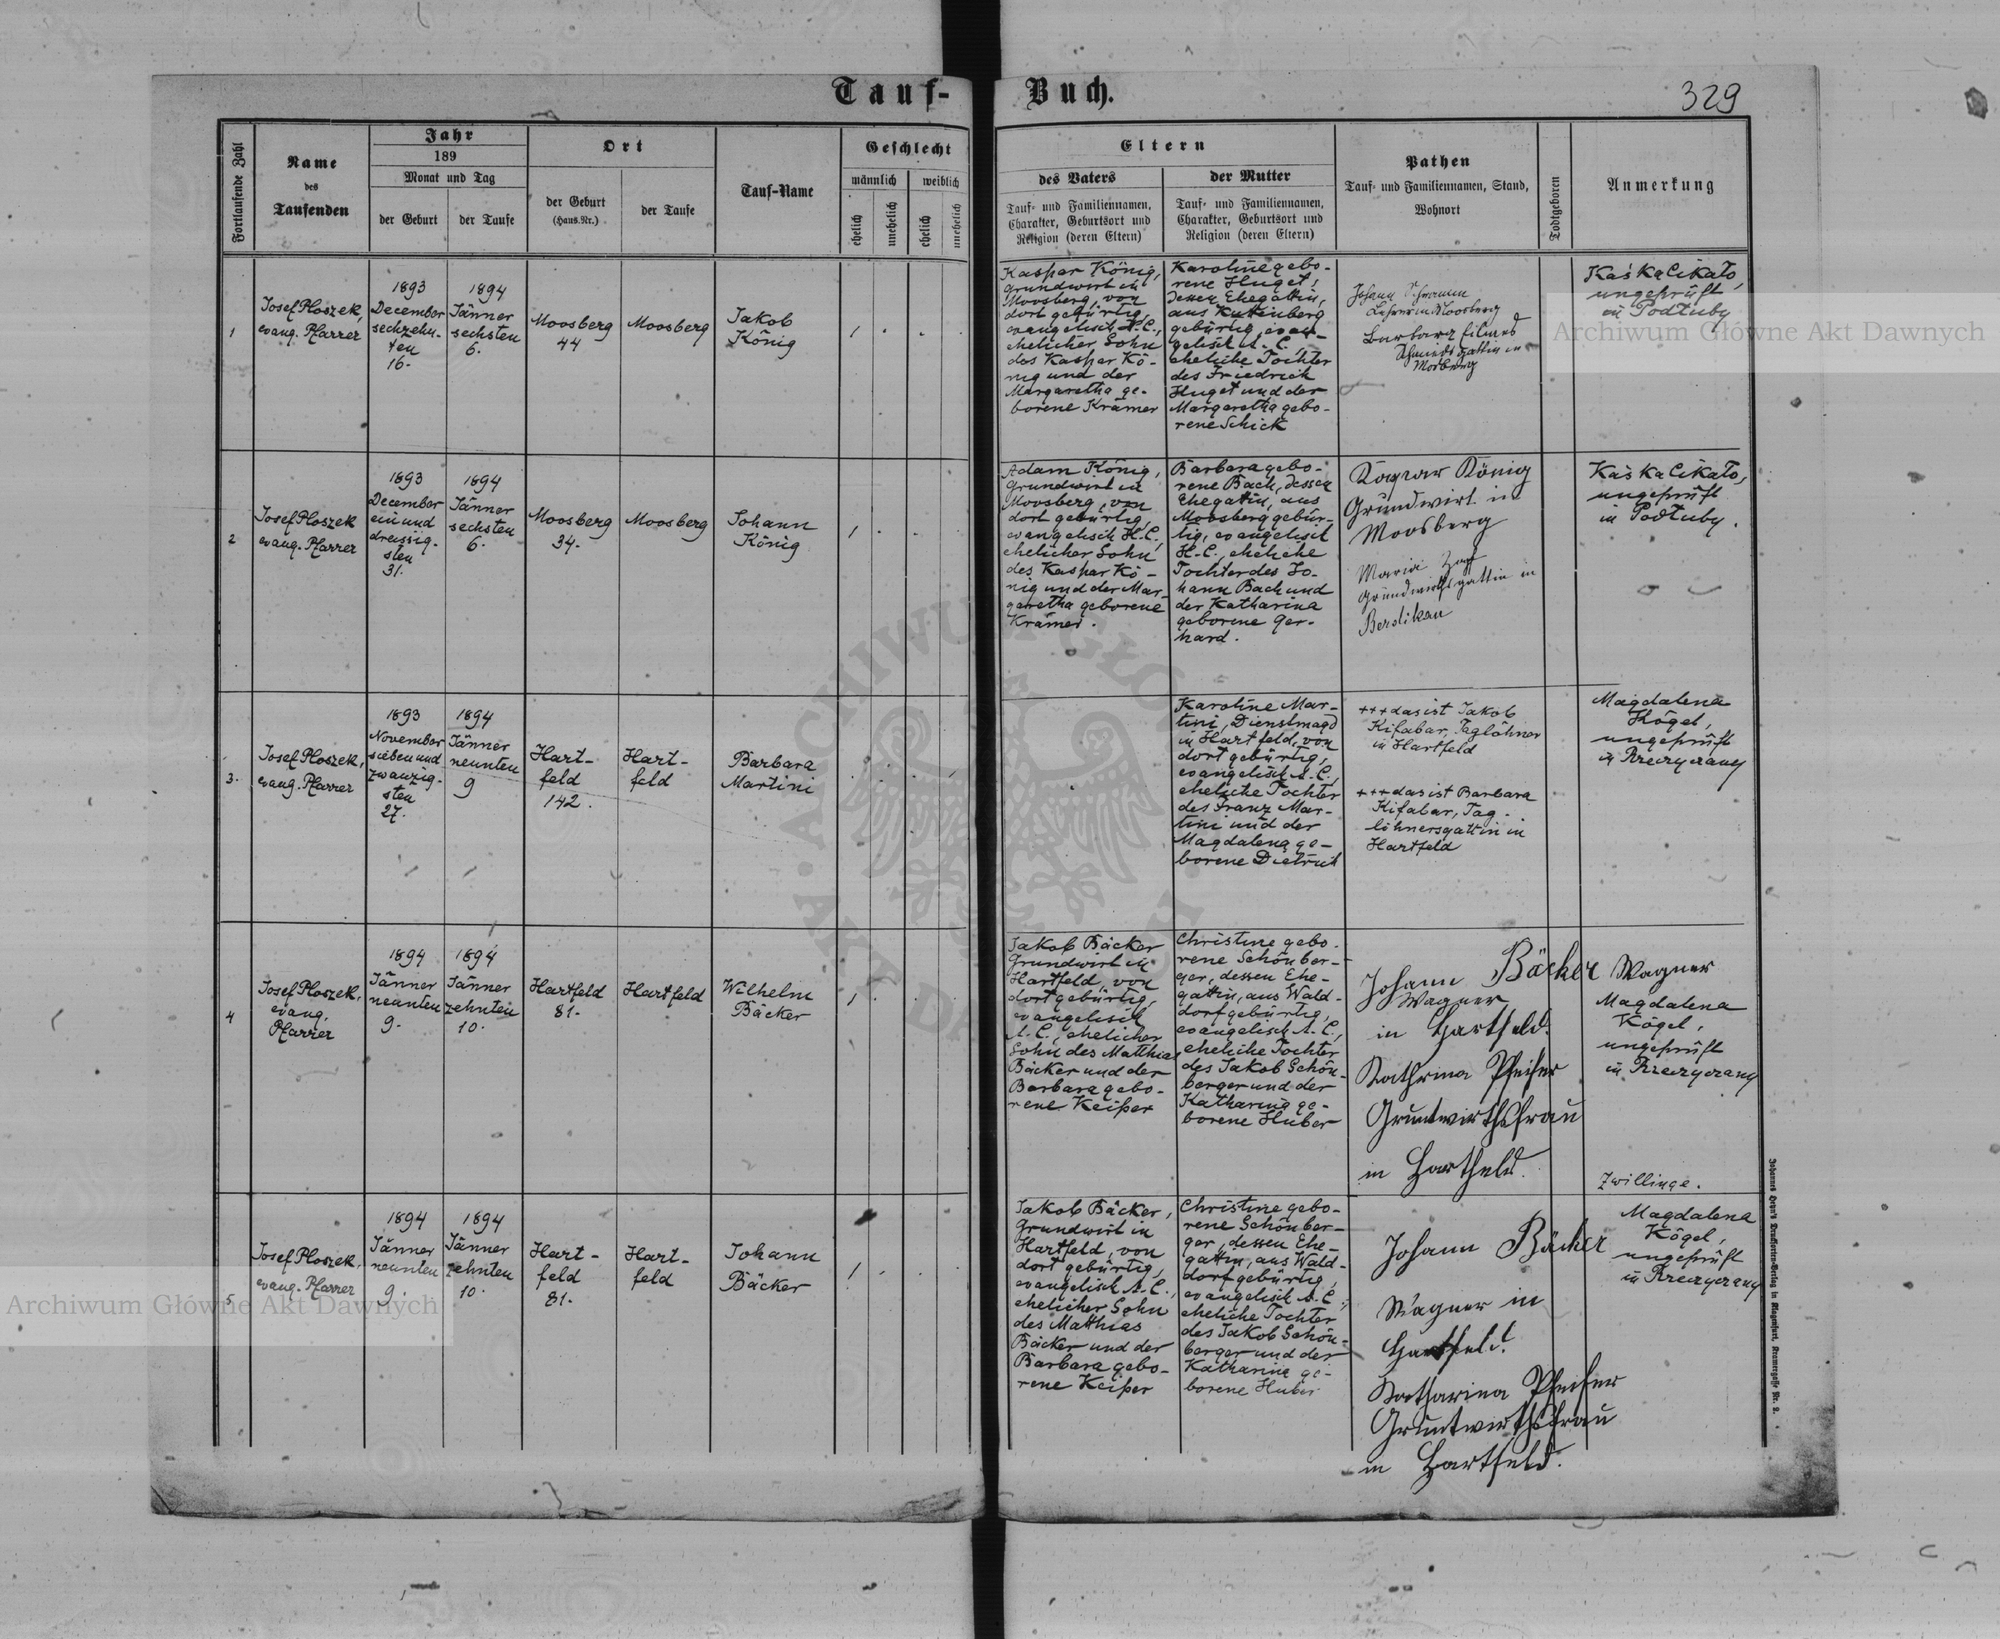 Tauf-Buch.
329
Fortlaufende Zahl
Name
des
Taufenden
Jahr
189
Monat und Tag
der Geburt
der Taufe
Ort
der Geburt
(Haus-Nr.)
der Taufe
Tauf-Name
Geschlecht
männlich
weiblich
ehelich
unehelich
ehelich
unehelich
Eltern
des Vaters
Tauf- und Familiennamen,
Charakter, Geburtsort und
Religion (deren Eltern)
der Mutter
Tauf- und Familiennamen,
Charakter, Geburtsort und
Religion (deren Eltern)
Pathen
Tauf- und Familiennamen, Stand,
Wohnort
Todtgeboren
Anmerkung
1
Josef Ploszek,
evang. Pfarrer
1893
December
sechzehn-
ten
16.
1894
Jänner
sechsten
6.
Moosberg
44
Moosberg
Jakob
König
1
Kaspar König,
Grundwirt in
Moosberg, von
dort gebürtig,
evangelisch H.C.,
ehelicher Sohn
des Kaspar Kö-
nig und der
Margaretha ge-
borene Krämer
Karoline gebo-
rene Huget,
dessen Ehegattin,
aus Kuttenberg
gebürtig, evan-
gelisch A. C.,
eheliche Tochter
des Friedrich
Huget und der
Margaretha gebo-
rene Schick
Johann
Lehrer in Moosberg
Barbara
gattin in
Moosberg
Kaśka Cikało,
ungeprüft
in Podłuby
2
Josef Ploszek
evang. Pfarrer
1893
December
ein und
dreissig-
sten
31.
1894
Jänner
sechsten
6.
Moosberg
34.
Moosberg
Johann
König
1
Adam König,
Grundwirt in
Moosberg, von
dort gebürtig,
evangelisch H.C.,
ehelicher Sohn
des Kaspar Kö-
nig und der Mar-
garetha geborene
Krämer.
Barbara gebo-
rene Bach, dessen
Ehegattin, aus
Moosberg gebür-
tig, evangelisch
H. C., eheliche
Tochter des Jo-
hann Bach und
der Katharina
geborene Ger-
hard.
Kaspar König
Grundwirt in
Moosberg
Maria
Grundwirtsgattin in
Berdikau
Kaśka Cikało,
ungeprüft
in Podłuby.
3.
Josef Ploszek,
evang. Pfarrer
1893
November
sieben und
zwanzig-
sten
27.
1894
Jänner
neunten
9
Hart-
feld
142.
Hart-
feld
Barbara
Martini
Karoline Mar-
tini, Dienstmagd
in Hartfeld, von
dort gebürtig,
evangelisch A.C.,
eheliche Tochter
des Franz Mar-
tini und der
Magdalena ge-
borene Dietrich
+++ das ist Jakob
Kifabar, Taglöhner
in Hartfeld
+++ das ist Barbara
Kifabar, Tag-
löhnersgattin in
Hartfeld
Magdalena
Kögel,
ungeprüft
in Rzeczyczany
4
Josef Ploszek,
evang.
Pfarrer
1894
Jänner
neunten
9.
1894
Jänner
zehnten
10.
Hartfeld
81.
Hartfeld
Wilhelm
Bäcker
1
Jakob Bäcker
Grundwirt in
Hartfeld, von
dort gebürtig,
evangelisch
A. C., ehelicher
Sohn des Matthias
Bäcker und der
Barbara gebo-
rene Keiper
Christine gebo-
rene Schönber-
ger, dessen Ehe-
gattin, aus Wald-
dorf gebürtig,
evangelisch A. C.,
eheliche Tochter
des Jakob Schön-
berger und der
Katharina ge-
borene Huber
Johann Bäcker Wagner
Wagner
in Hartfeld.
Kathrina Pfeifer
Gruntwirthsfrau
in Hartfeld.
Magdalena
Kögel,
ungeprüft
in Rzeczyczany
Zwillinge.
5
Josef Ploszek,
evang. Pfarrer
1894
Jänner
neunten
9.
1894
Jänner
zehnten
10.
Hart-
feld
81.
Hart-
feld
Johann
Bäcker
1
Jakob Bäcker,
Grundwirt in
Hartfeld, von
dort gebürtig,
evangelisch A.C.,
ehelicher Sohn
des Matthias
Bäcker und der
Barbara gebo-
rene Keiper
Christine gebo-
rene Schönber-
ger, dessen Ehe-
gattin, aus Wald-
dorf gebürtig,
evangelisch A.C.,
eheliche Tochter
des Jakob Schön-
berger und der
Katharina ge-
borene Huber
Johann Bäcker
Wagner in
Hartfeld.
Katharina Pfeifer
Gruntwirthsfrau
in Hartfeld.
Magdalena
Kögel,
ungeprüft
in Rzeczyczany
Johannes Heyn's Druckforten-Verlag in Klagenfurt, Kramergasse Nr. 2.
Archiwum Główne Akt Dawnych
Archiwum Główne Akt Dawnych
ARCHIWUM GŁÓWNE AKT DAWNYCH